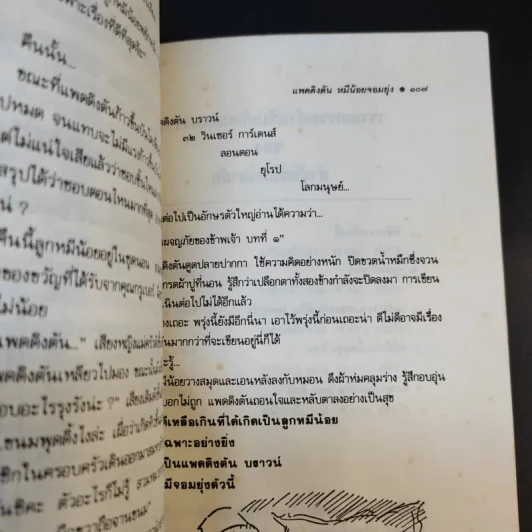 คืนนั้น...
ขณะที่แพดดิงตันก้าวขึ้นบันได
ปหมด จนแทบจะไม่มีแรง
ต่ไม่แน่ใจเสียแล้วว่าชอบ
สรุปได้ว่าชอบตอนไหนมากที่สุด
น่ ?
คืนนี้ลูกหมีน้อยอยู่ในชุดนอน
ของขวัญที่ได้รับจากคุณกรูเบอร์
ไม่น้อย
แพดดิงตัน..." เสียงหญิงแม่ครัว
พดดิงตันเหลียวไปมอง
อบอะไรรุงรังน่ะ ?"
ขนมพุดดิ้งไงล่ะ เผื่อว่าเกิดหิว
ชิกในครอบครัวเดินออกมา
นซิคะ ตัวอะไรก็ไม่รู้
แพดดิงตัน หมีน้อยจอมยุ่ง ● ๑๐๗
ดิงตัน บราวน์
๓๒ วินเซอร์ การ์เดนส์
ลอนดอน
ยุโรป
โลกมนุษย์...
ต่อไปเป็นอักษรตัวใหญ่อ่านได้ความว่า...
ผจญภัยของข้าพเจ้า บทที่ ๑"
ดิงตันดูดปลายปากกา ใช้ความคิดอย่างหนัก ปิดขวดน้ำหมึกซึ่งจวน
กรดผ้าปูที่นอน รู้สึกว่าเปลือกตาทั้งสองข้างกำลังจะปิดลงมา การเขียน
เนินต่อไปไม่ได้อีกแล้ว
างเถอะ พรุ่งนี้ยังมีอีกนี่นา เอาไว้พรุ่งนี้ก่อนเถอะน่า ดีไม่ดีอาจมีเรื่อง
นมากกว่าที่จะเขียนอยู่นี่ก็ได้
ะรู้...
มีน้อยวางสมุดและเอนหลังลงกับหมอน ดึงผ้าห่มคลุมร่าง รู้สึกอบอุ่น
บอกไม่ถูก แพดดิงตันถอนใจและหลับตาลงอย่างเป็นสุข
ดีเหลือเกินที่ได้เกิดเป็นลูกหมีน้อย
ฉพาะอย่างยิ่ง
เป็นแพดดิงตัน บราวน์
มีจอมยุ่งตัวนี้